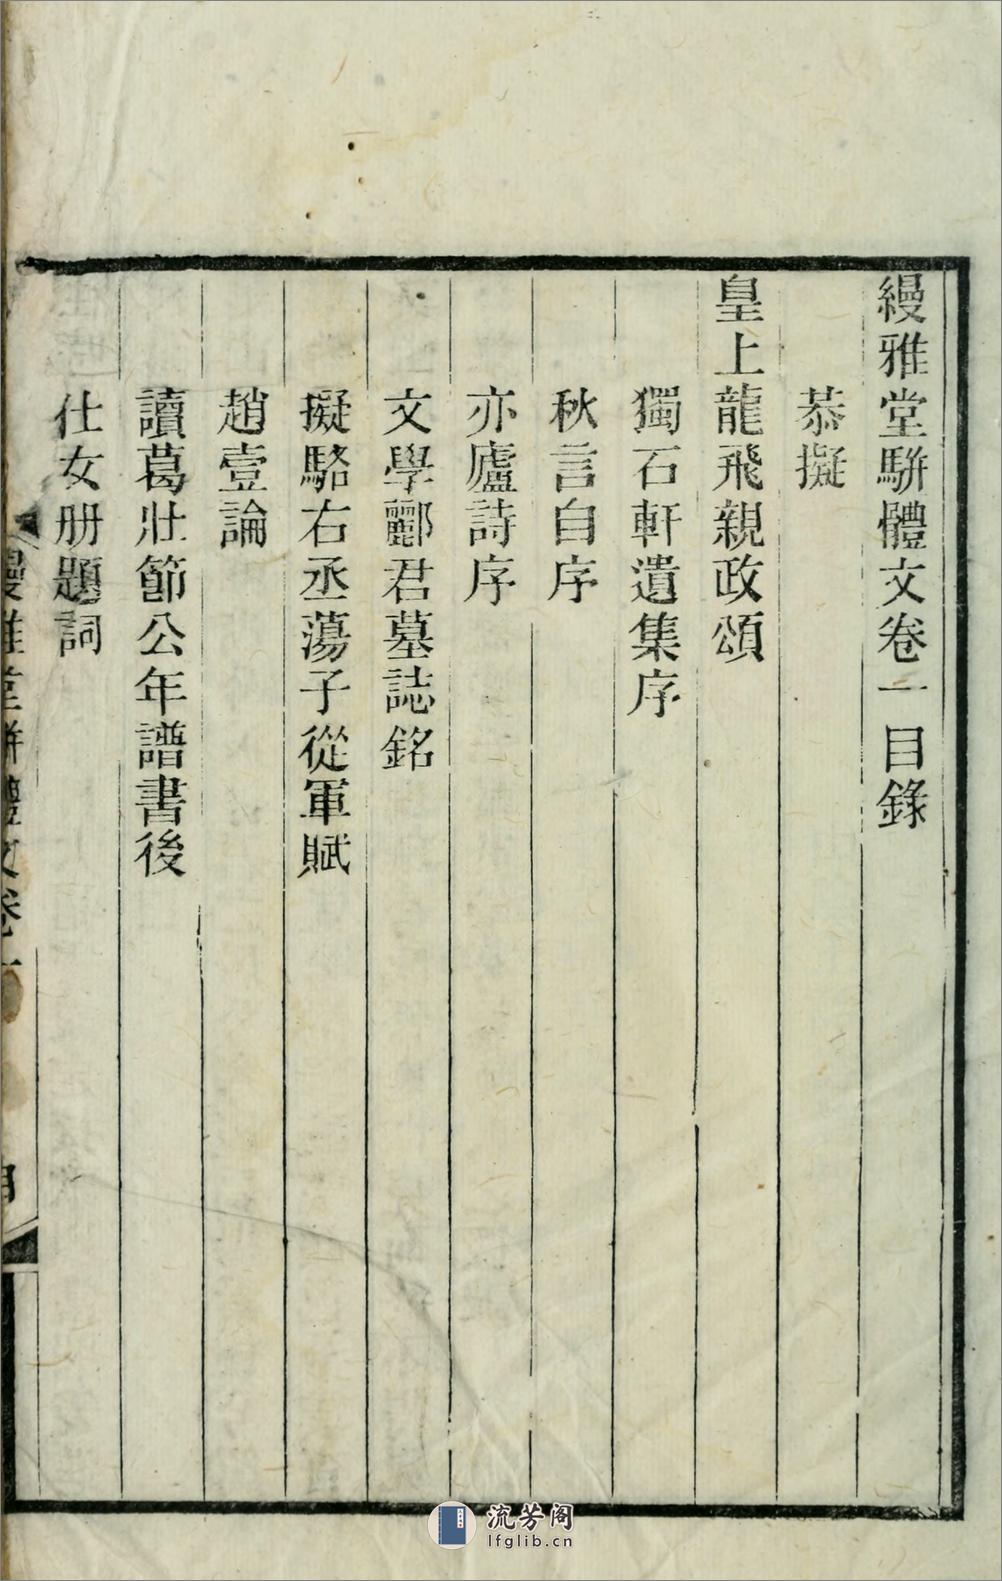 縵雅堂駢體文卷一目錄
恭擬
皇上龍飛親政頌
獨石軒遺集序
秋言自序
亦廬詩序
文學酈君墓誌銘
擬駱右丞蕩子從軍賦
趙壹論
讀葛壯節公年譜書後
仕女册題詞
縵雅堂駢體文卷一
流芳阁
lfglib.cn